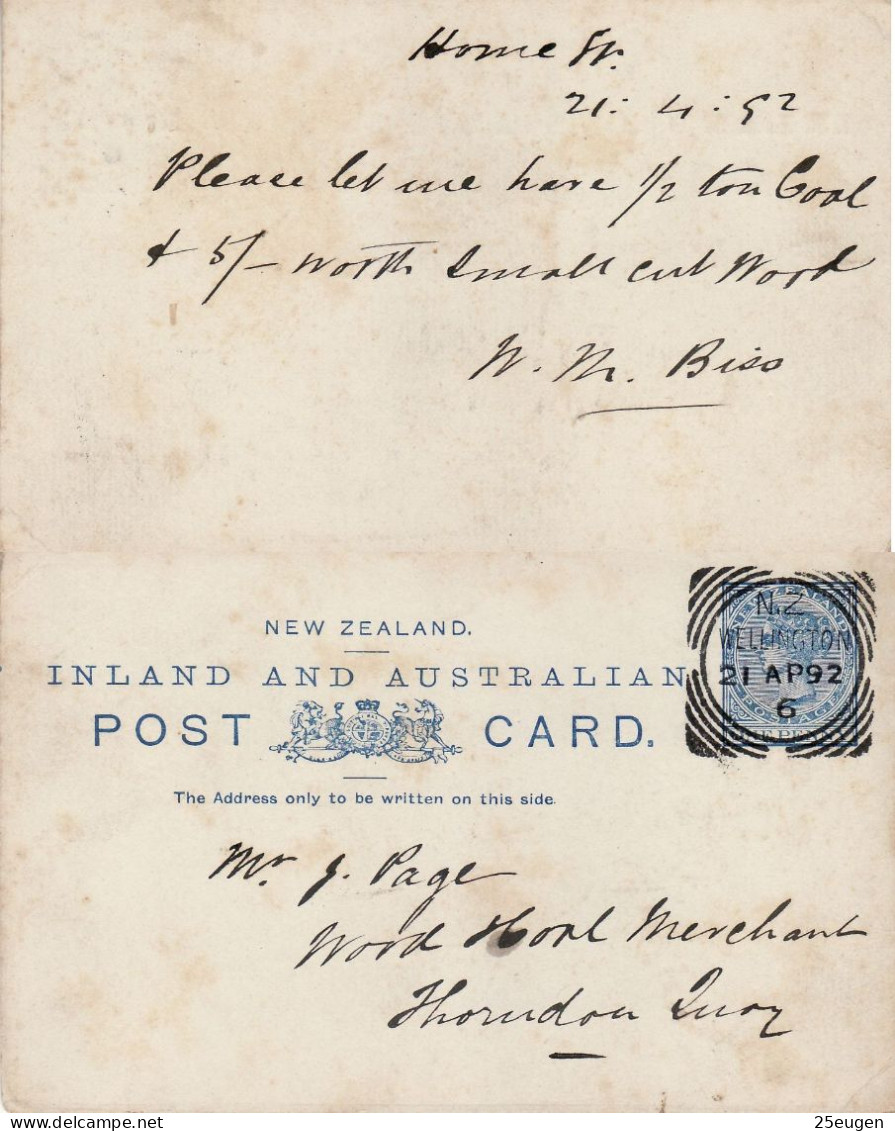 Home St.
21: 4: 92
Please let me have 1/2 ton Coal
& 5/- worth small cut Wood
W. M. Biss
NEW ZEALAND.
INLAND AND AUSTRALIAN
POST CARD.
The Address only to be written on this side.
N.Z
WELLINGTON
21 AP 92
6
NEW ZEALAND
POSTAGE
ONE PENNY
Mr J. Page
Wood & Coal Merchant
Thorndon Quay
delcampe.net
25eugen